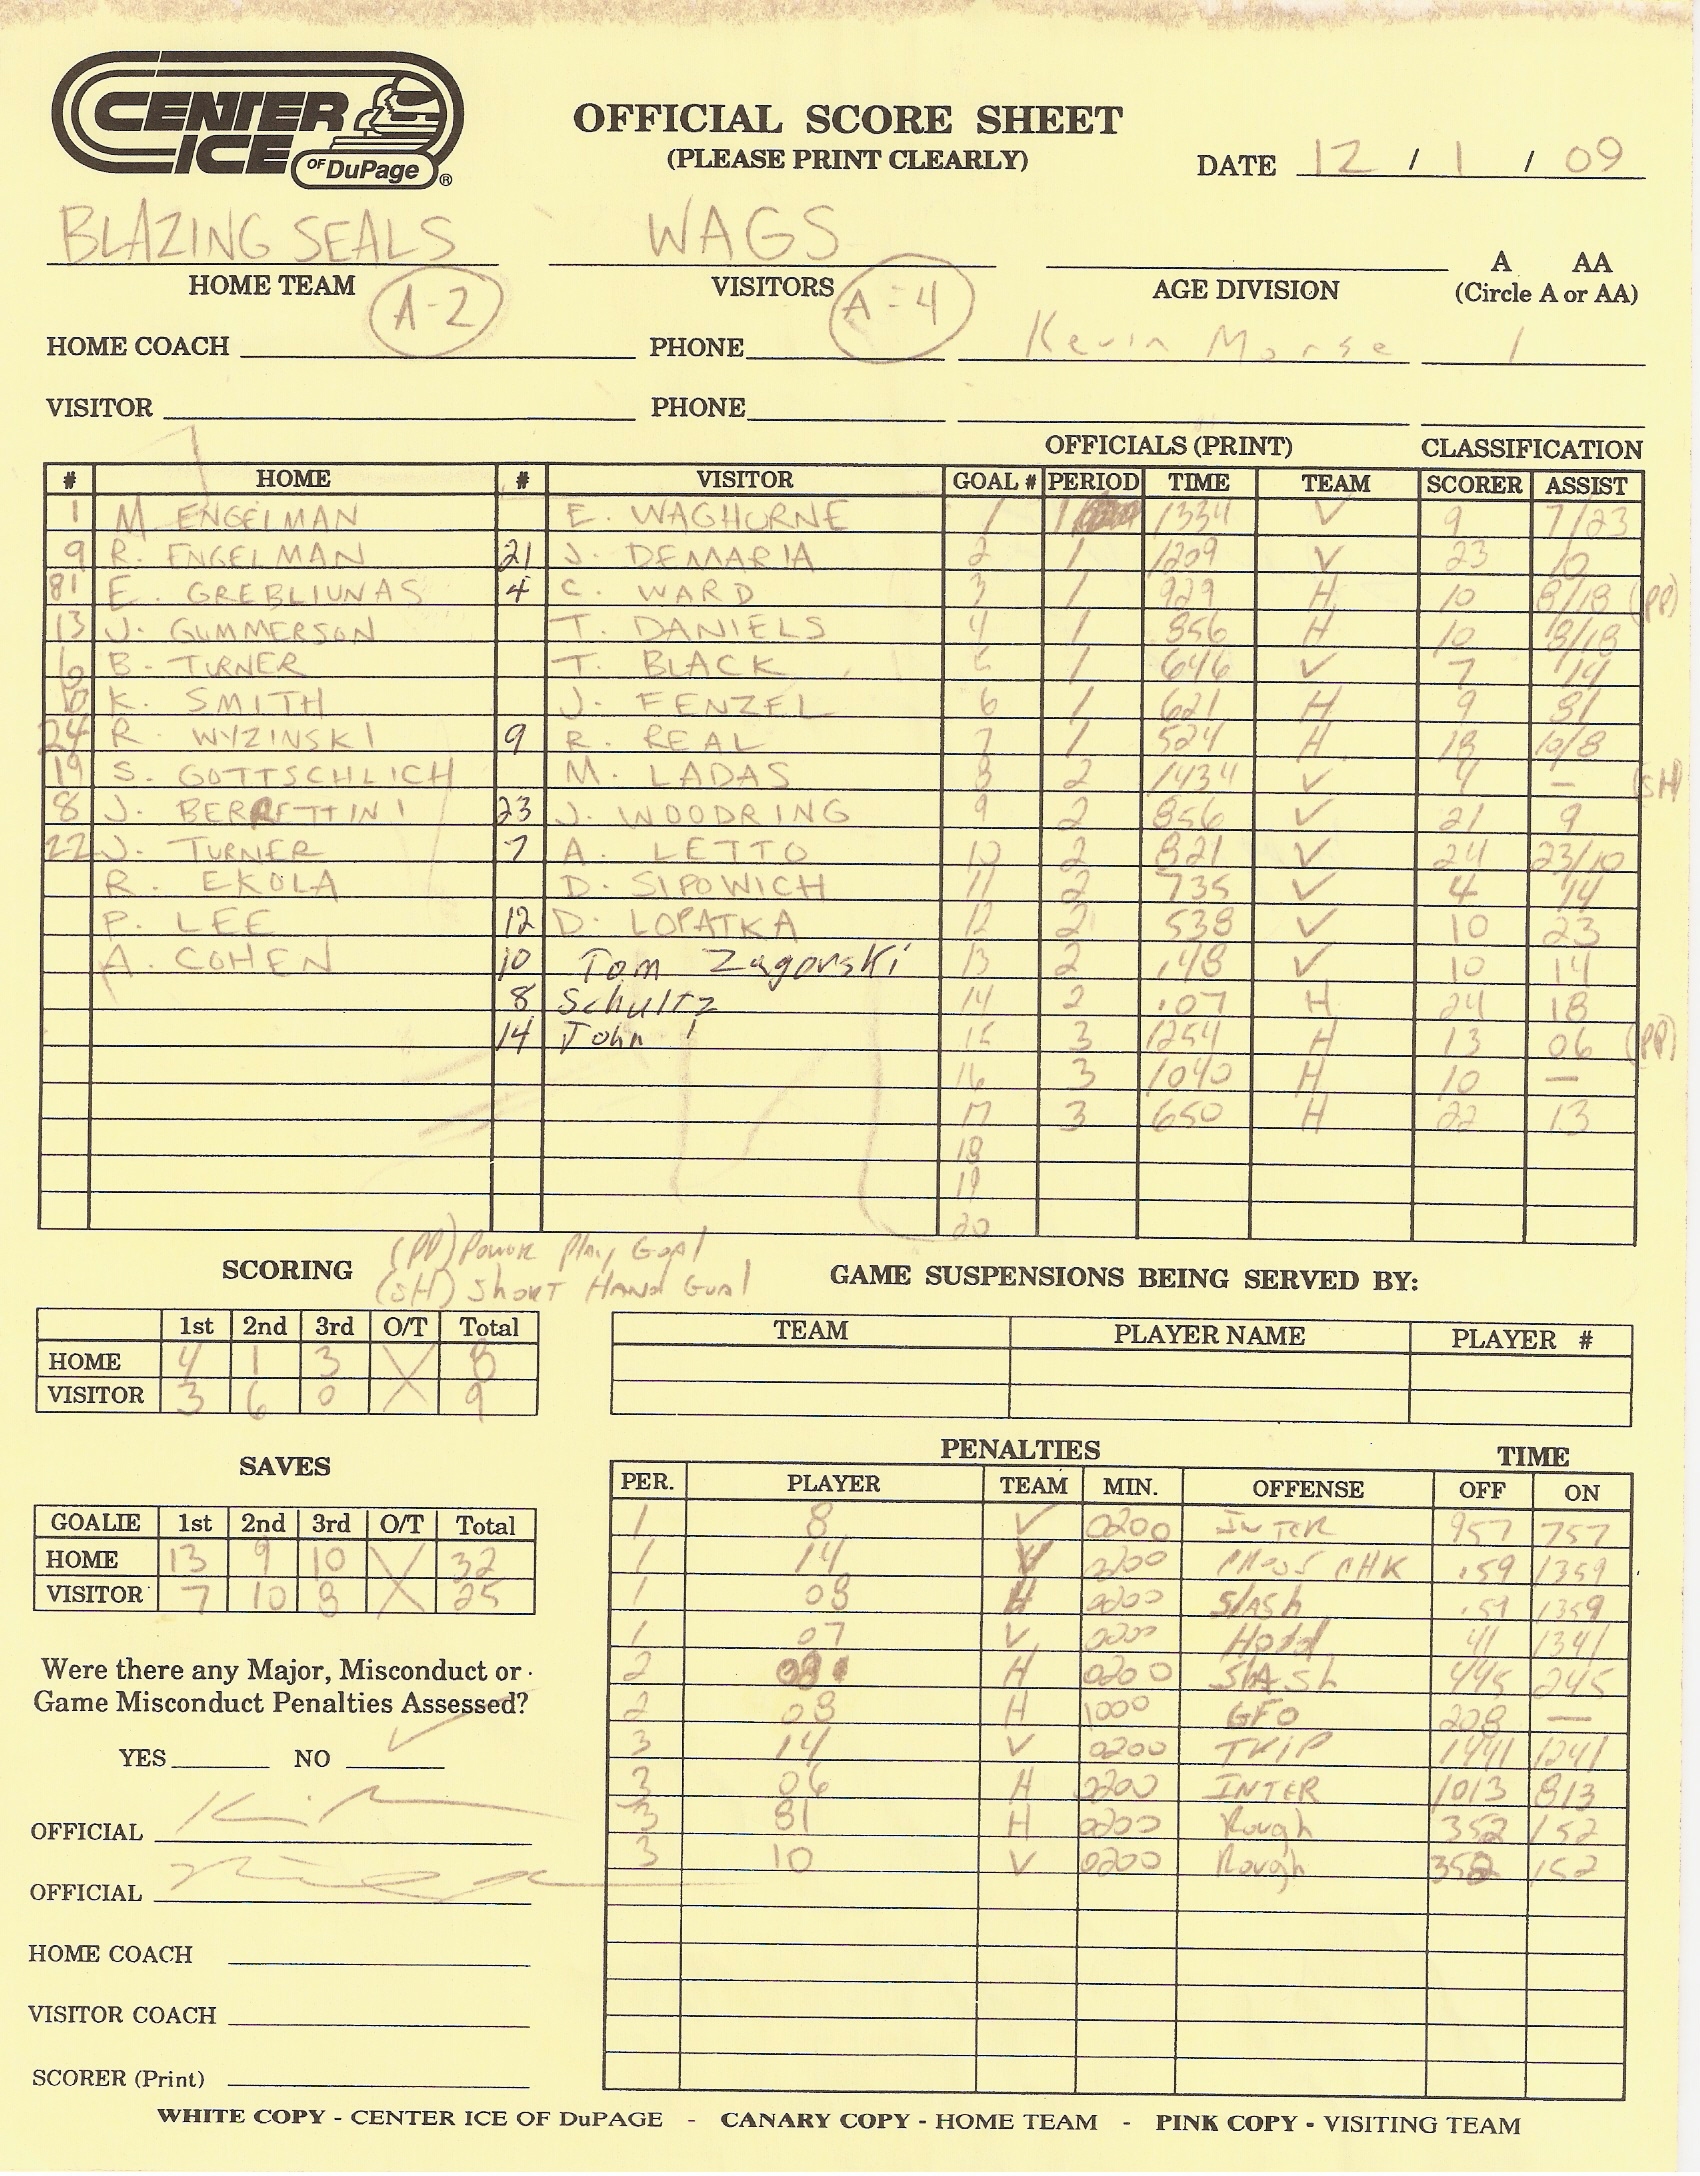 CENTER ICE OF DuPage ®
OFFICIAL SCORE SHEET
(PLEASE PRINT CLEARLY)
DATE 12 / 1 / 09
BLAZING SEALS WAGS
HOME TEAM VISITORS AGE DIVISION A AA
(Circle A or AA)
A-2 A-4
HOME COACH PHONE Kevin Morse 1
VISITOR PHONE
OFFICIALS (PRINT) CLASSIFICATION
# HOME # VISITOR GOAL # PERIOD TIME TEAM SCORER ASSIST
1 M ENGELMAN E. WAGHORNE 1 1 1334 V 9 7/23
9 R. ENGELMAN 21 J. DEMARIA 2 1 1209 V 23 10
81 E. GREBLIUNAS 4 C. WARD 3 1 929 H 10 8/18 (PP)
13 J. GUMMERSON T. DANIELS 4 1 856 H 10 8/18
6 B. TURNER T. BLACK 5 1 646 V 7 14
10 K. SMITH J. FENZEL 6 1 621 H 9 81
24 R. WYZINSKI 9 R. REAL 7 1 524 H 18 10/8
19 S. GOTTSCHLICH M. LADAS 8 2 1434 V 4 — (SH)
8 J. BERRETTINI 23 J. WOODRING 9 2 856 V 21 9
22 J. TURNER 7 A. LETTO 10 2 821 V 24 23/10
R. EKOLA D. SIPOWICH 11 2 735 V 4 14
P. LEE 12 D. LOPATKA 12 2 538 V 10 23
A. COHEN 10 Tom Zagorski 13 2 148 V 10 14
8 Schultz 14 2 .07 H 24 18
14 John 15 3 1254 H 13 06 (PP)
16 3 1040 H 10 —
17 3 650 H 22 13
18
19
20
(PP) Power Play Goal
SCORING (SH) Short Hand Goal
GAME SUSPENSIONS BEING SERVED BY:
1st 2nd 3rd O/T Total
HOME 4 1 3 X 8
VISITOR 3 6 0 X 9
TEAM PLAYER NAME PLAYER #
SAVES
GOALIE 1st 2nd 3rd O/T Total
HOME 13 9 10 X 32
VISITOR 7 10 8 X 25
Were there any Major, Misconduct or
Game Misconduct Penalties Assessed?
YES NO ✓
OFFICIAL
OFFICIAL
HOME COACH
VISITOR COACH
SCORER (Print)
PENALTIES TIME
PER. PLAYER TEAM MIN. OFFENSE OFF ON
1 8 V 0200 INTER 957 757
1 14 V 0200 CHK .59 1359
1 08 H 0200 Slash .59 1359
1 07 V 0200 Hold 41 1341
2 H 0200 SLASH 445 245
2 08 H 1000 GFO 208 —
3 14 V 0200 TRIP 1441 1241
3 06 H 0200 INTER 1013 813
3 81 H 0200 Rough 352 152
3 10 V 0200 Rough 352 152
WHITE COPY - CENTER ICE OF DuPAGE - CANARY COPY - HOME TEAM - PINK COPY - VISITING TEAM